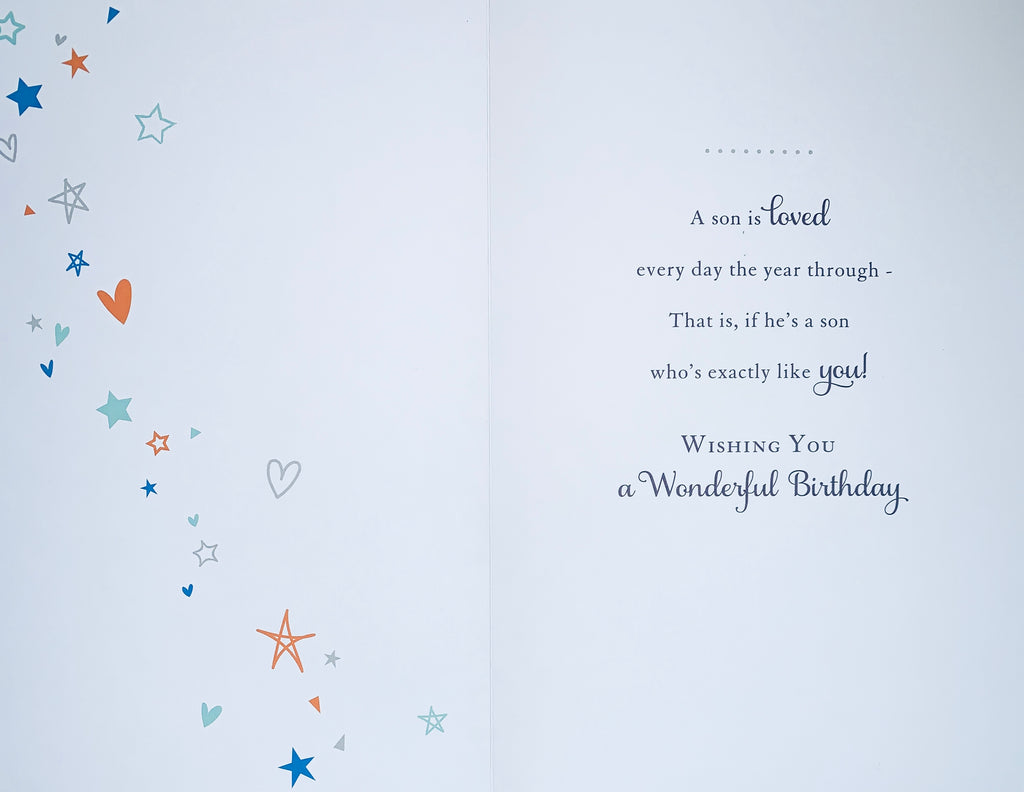 A son is loved
every day the year through -
That is, if he's a son
who's exactly like you!
Wishing You
a Wonderful Birthday